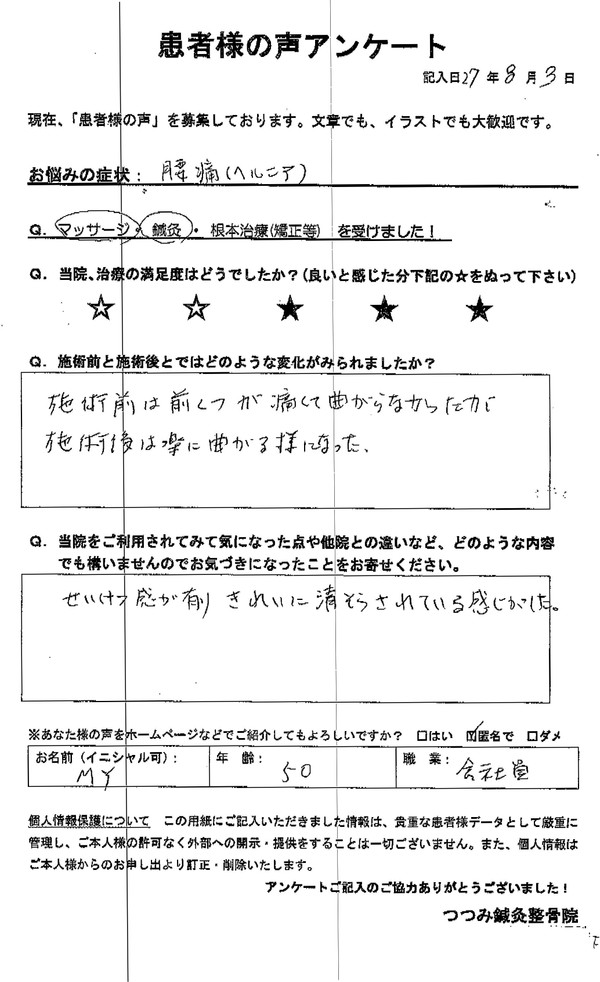 患者様の声アンケート
記入日27年8月3日
現在、「患者様の声」を募集しております。文章でも、イラストでも大歓迎です。
お悩みの症状: 腰痛(ヘルニア)
Q. マッサージ・鍼灸・根本治療(矯正等) を受けました!
Q. 当院、治療の満足度はどうでしたか?(良いと感じた分下記の☆をぬって下さい)
☆ ☆ ★ ★ ★
Q. 施術前と施術後とではどのような変化がみられましたか?
施術前は前くつが痛くて曲がらなかったが
施術後は楽に曲がる様になった、
Q. 当院をご利用されてみて気になった点や他院との違いなど、どのような内容
でも構いませんのでお気づきになったことをお寄せください。
せいけつ感が有り きれいに清そうされている感じがした。
※あなた様の声をホームページなどでご紹介してもよろしいですか? □はい ☑匿名で □ダメ
お名前(イニシャル可): 年 齢: 職 業:
MY 50 会社員
個人情報保護について この用紙にご記入いただきました情報は、貴重な患者様データとして厳重に
管理し、ご本人様の許可なく外部への開示・提供をすることは一切ございません。また、個人情報は
ご本人様からのお申し出より訂正・削除いたします。
アンケートご記入のご協力ありがとうございました!
つつみ鍼灸整骨院